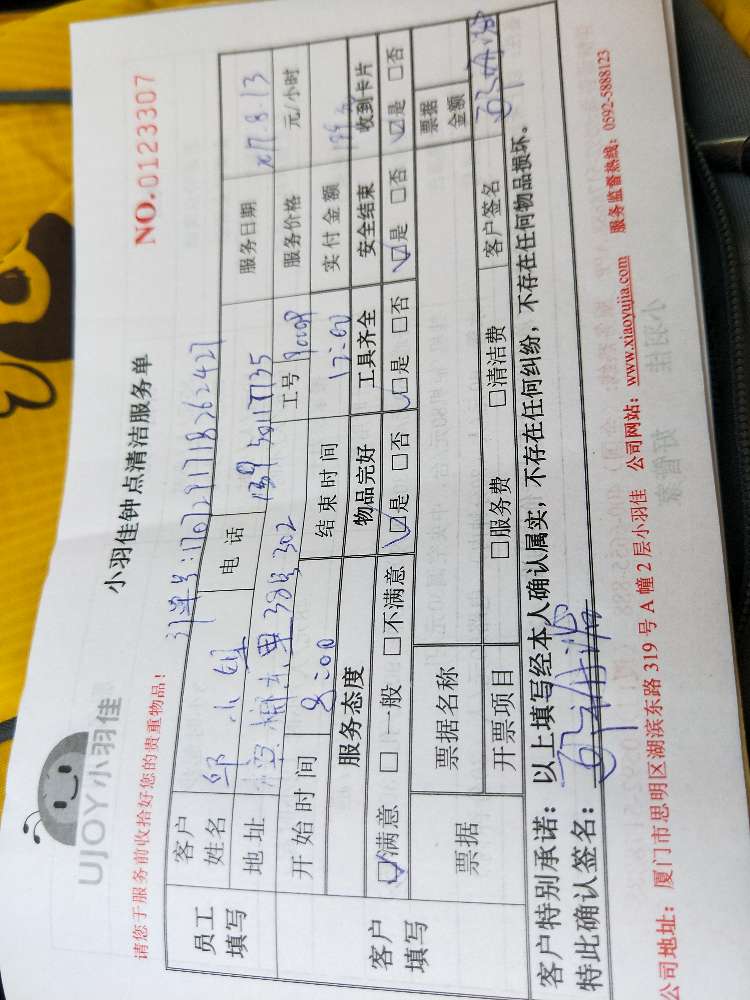 UJOY小羽佳
小羽佳钟点清洁服务单
NO.0123307
请您于服务前收拾好您的贵重物品!
员工填写
客户姓名 邹小姐 电话 服务日期 17.8.13
地址 38号302 工号 服务价格 元/小时
开始时间 8:00 结束时间 12:00 实付金额
客户填写
服务态度 物品完好 工具齐全 安全结束 收到卡片
☑满意 □一般 □不满意 ☑是 □否 ☑是 □否 ☑是 □否 ☑是 □否
票据 票据名称 票据金额
开票项目 □服务费 □清洁费 客户签名
客户特别承诺:以上填写经本人确认属实,不存在任何纠纷,不存在任何物品损坏.
特此确认签名:
公司地址:厦门市思明区湖滨东路 319 号 A 幢 2 层小羽佳 公司网站:www.xiaoyujia.com 服务监督热线:0592-5888123